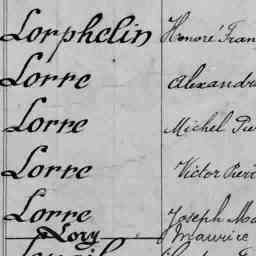 Lorphelin Honoré Fran
Lorre Alexandr
Lorre Michel Pie
Lorre Victor Pierr
Lorre Joseph Ma
Lory Maurice